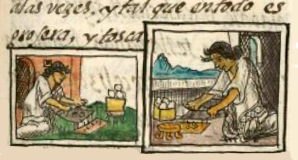 alas vezes, y tal que en todo es
grosera, y tosca